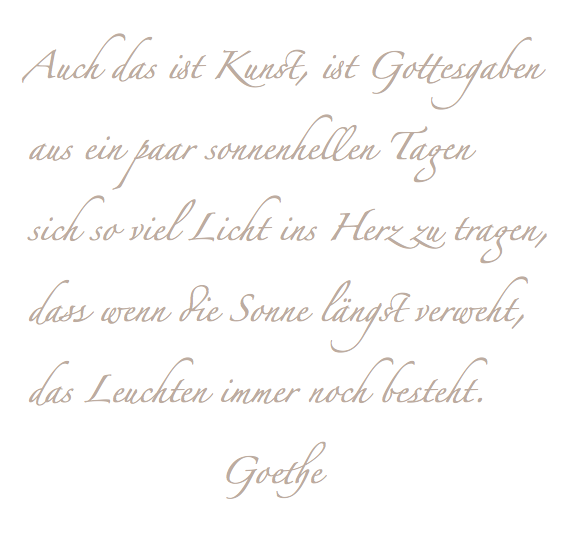 Auch das ist Kunst, ist Gottesgaben
aus ein paar sonnenhellen Tagen
sich so viel Licht ins Herz zu tragen,
dass wenn die Sonne längst verweht,
das Leuchten immer noch besteht.
Goethe